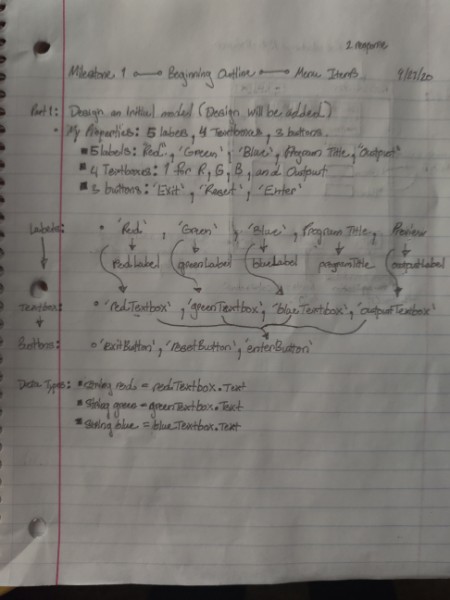 1 response
Milestone 1 Beginning Outline Menu Items 9/27/20
Part 1: Design an initial model (Design will be added)
• My Properties: 5 labels, 4 Textboxes, 3 buttons.
▪ 5 labels: "Red", 'Green', 'Blue', Program Title, "Output"
▪ 4 Textboxes: 1 for R, G, B, and Output
▪ 3 buttons: 'Exit', 'Reset', 'Enter'
Labels: • 'Red', 'Green', 'Blue', Program Title, Preview
RedLabel greenLabel BlueLabel programTitle outputLabel
Textbox: • 'redTextbox', 'greenTextbox', 'blueTextbox', 'outputTextbox'
Buttons: • 'exitButton', 'resetButton', 'enterButton'
Data Types: ▪ string red = redTextbox.Text
▪ string green = greenTextbox.Text
▪ string blue = blueTextbox.Text